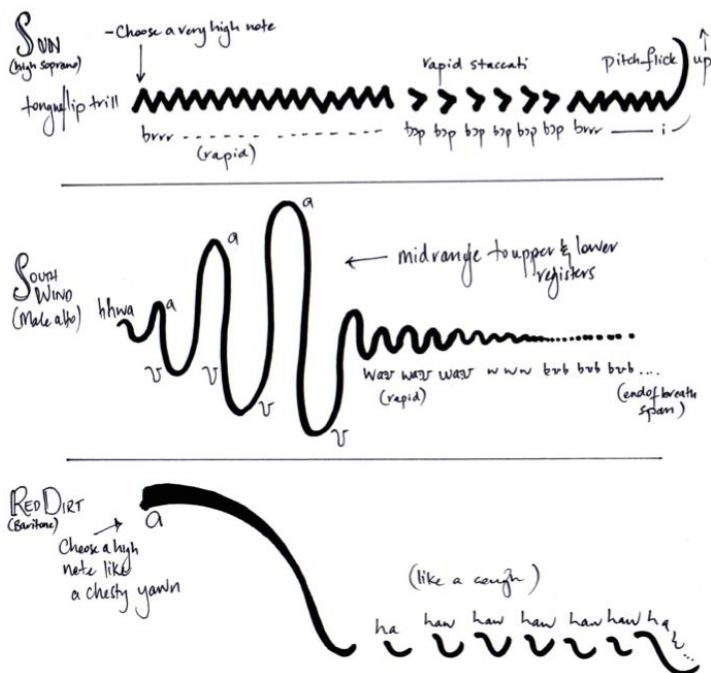 SUN
(high soprano)
- Choose a very high note
rapid staccati
pitch-flick
up
tongue/lip trill
brrr
(rapid)
bɔp bɔp bɔp bɔp bɔp bɔp brrr i
SOUTH
WIND
(Male alto)
hhwa
a
a
a
← midrange to upper & lower
registers
v
v
v
v
wav wav wav w w w bvb bvb bvb ....
(rapid)
(end of breath
span)
RED DIRT
(Baritone)
a
Choose a high
note like
a chesty yawn
(like a cough)
ha haw haw haw haw haw ha